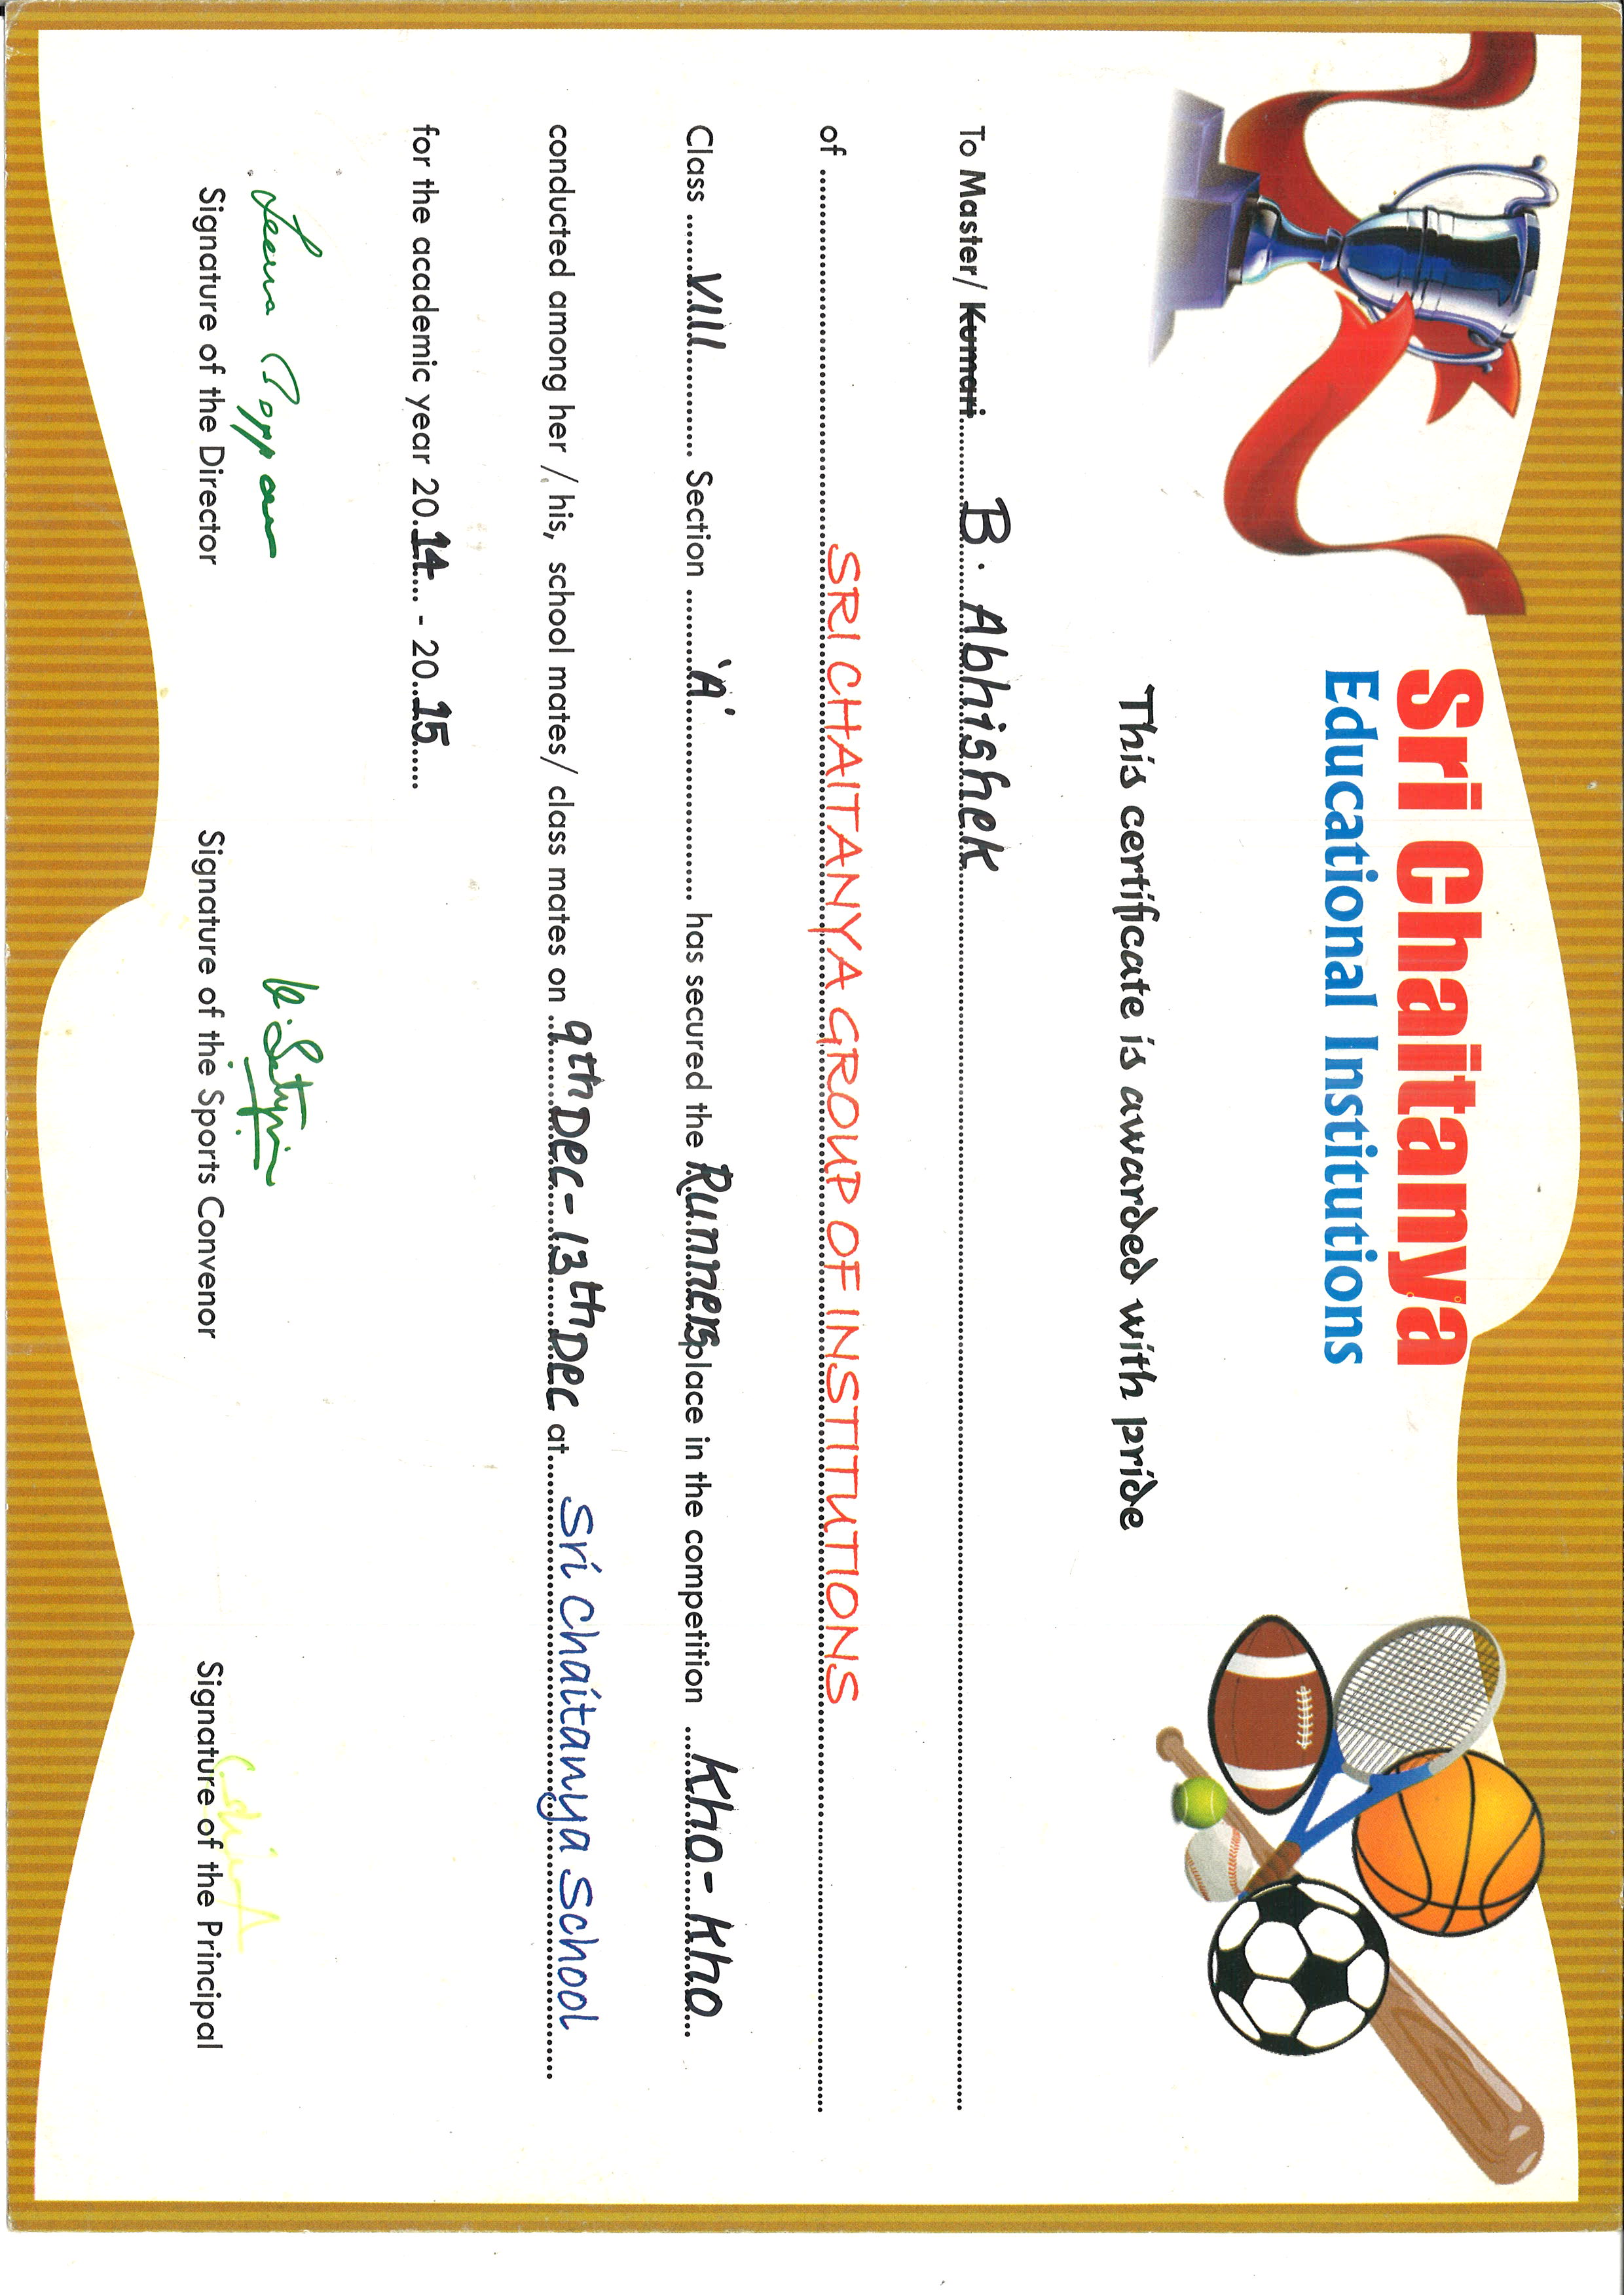 Sri Chaitanya
Educational Institutions
This certificate is awarded with pride
To Master/ Kumari B. Abhishek
of SRI CHAITANYA GROUP OF INSTITUTIONS
Class VIII Section 'A' has secured the Runners place in the competition Kho-Kho
conducted among her / his, school mates/ class mates on 9th Dec-13th Dec at Sri Chaitanya School
for the academic year 2014 - 2015
Signature of the Director
Signature of the Sports Convenor
Signature of the Principal